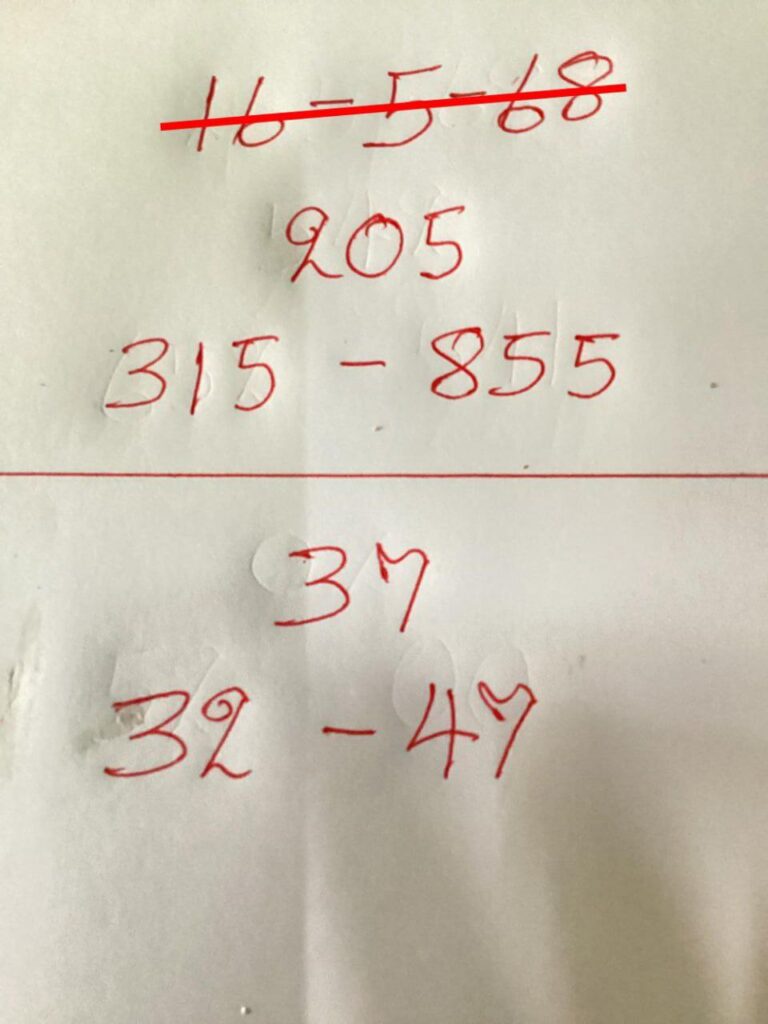 16-5-68
205
315 - 855
37
32 - 47